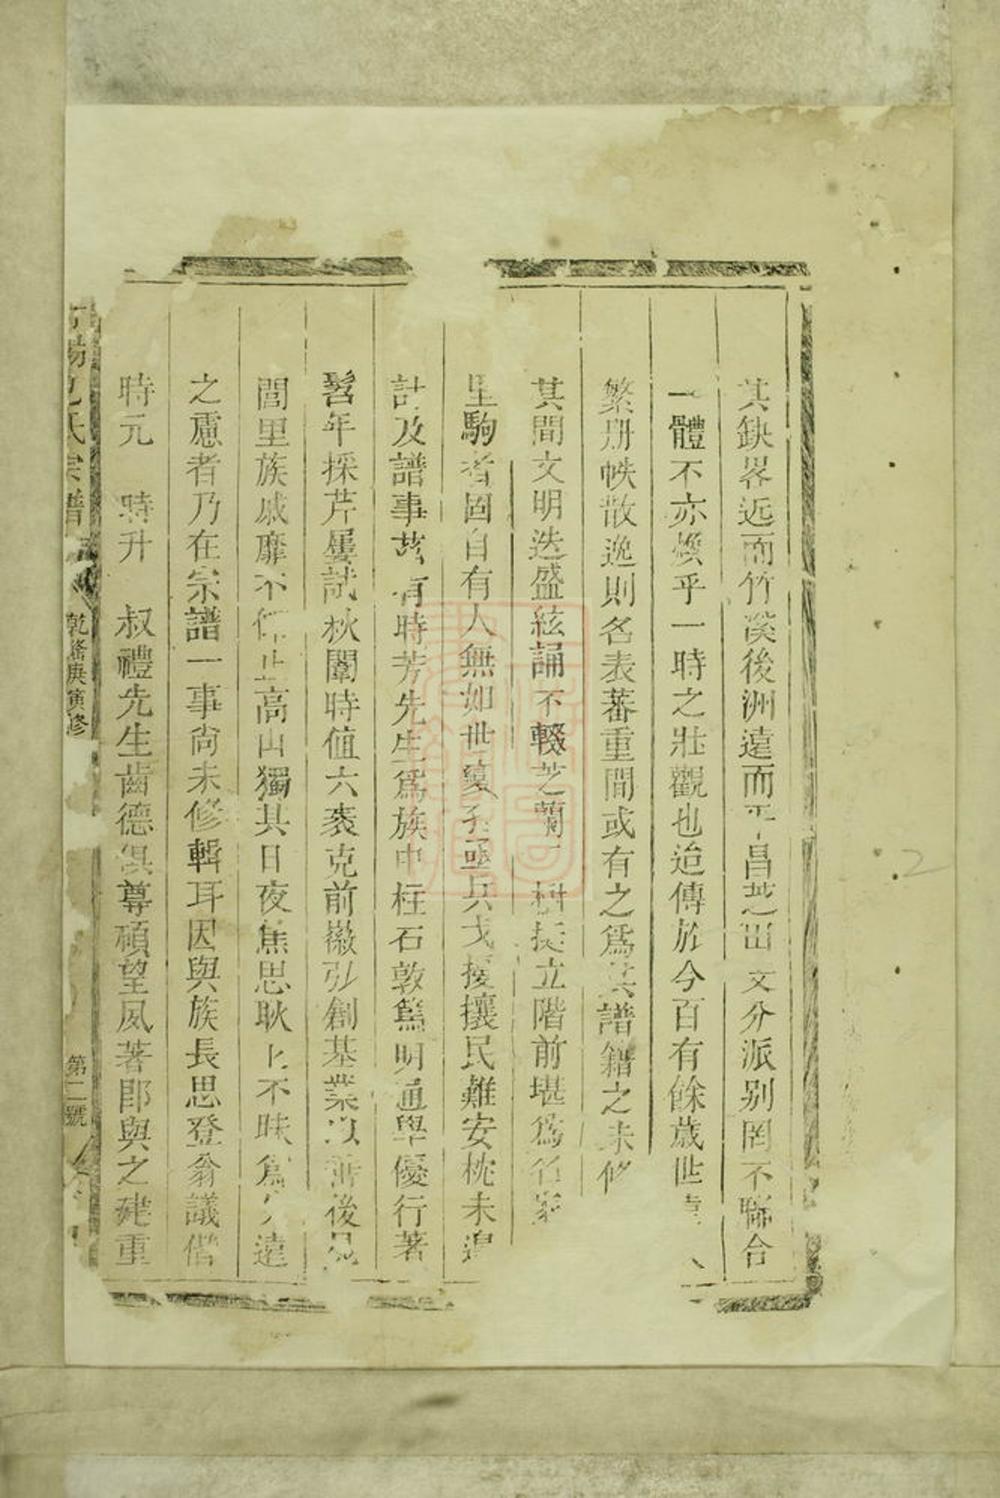 其缺畧近而竹溪後洲遠而平昌芝田文分派别罔不聯合
一體不亦煥乎一時之壯觀也迨傳於今百有餘歲世
繁册帙散逸則名表蕃重間或有之爲其譜籍之未修
其間文明迭盛絃誦不輟芝蘭挺立階前堪爲名家
里駒者固自有人無如世變孔亟兵戈擾攘民難安枕未遑
計及譜事茲有時芳先生爲族中柱石敦篤明通學優行著
髫年採芹屢試秋闈時值六袠克前徽弘創基業以善後昆
閭里族戚靡不仰止高山獨其日夜焦思耿耿不昧爲遠
之慮者乃在宗譜一事尚未修輯耳因與族長思登翁議偕
時元　時升　叔禮先生齒德俱尊碩望夙著即與之建重
包氏宗譜
乾隆庚寅修
第二號
2